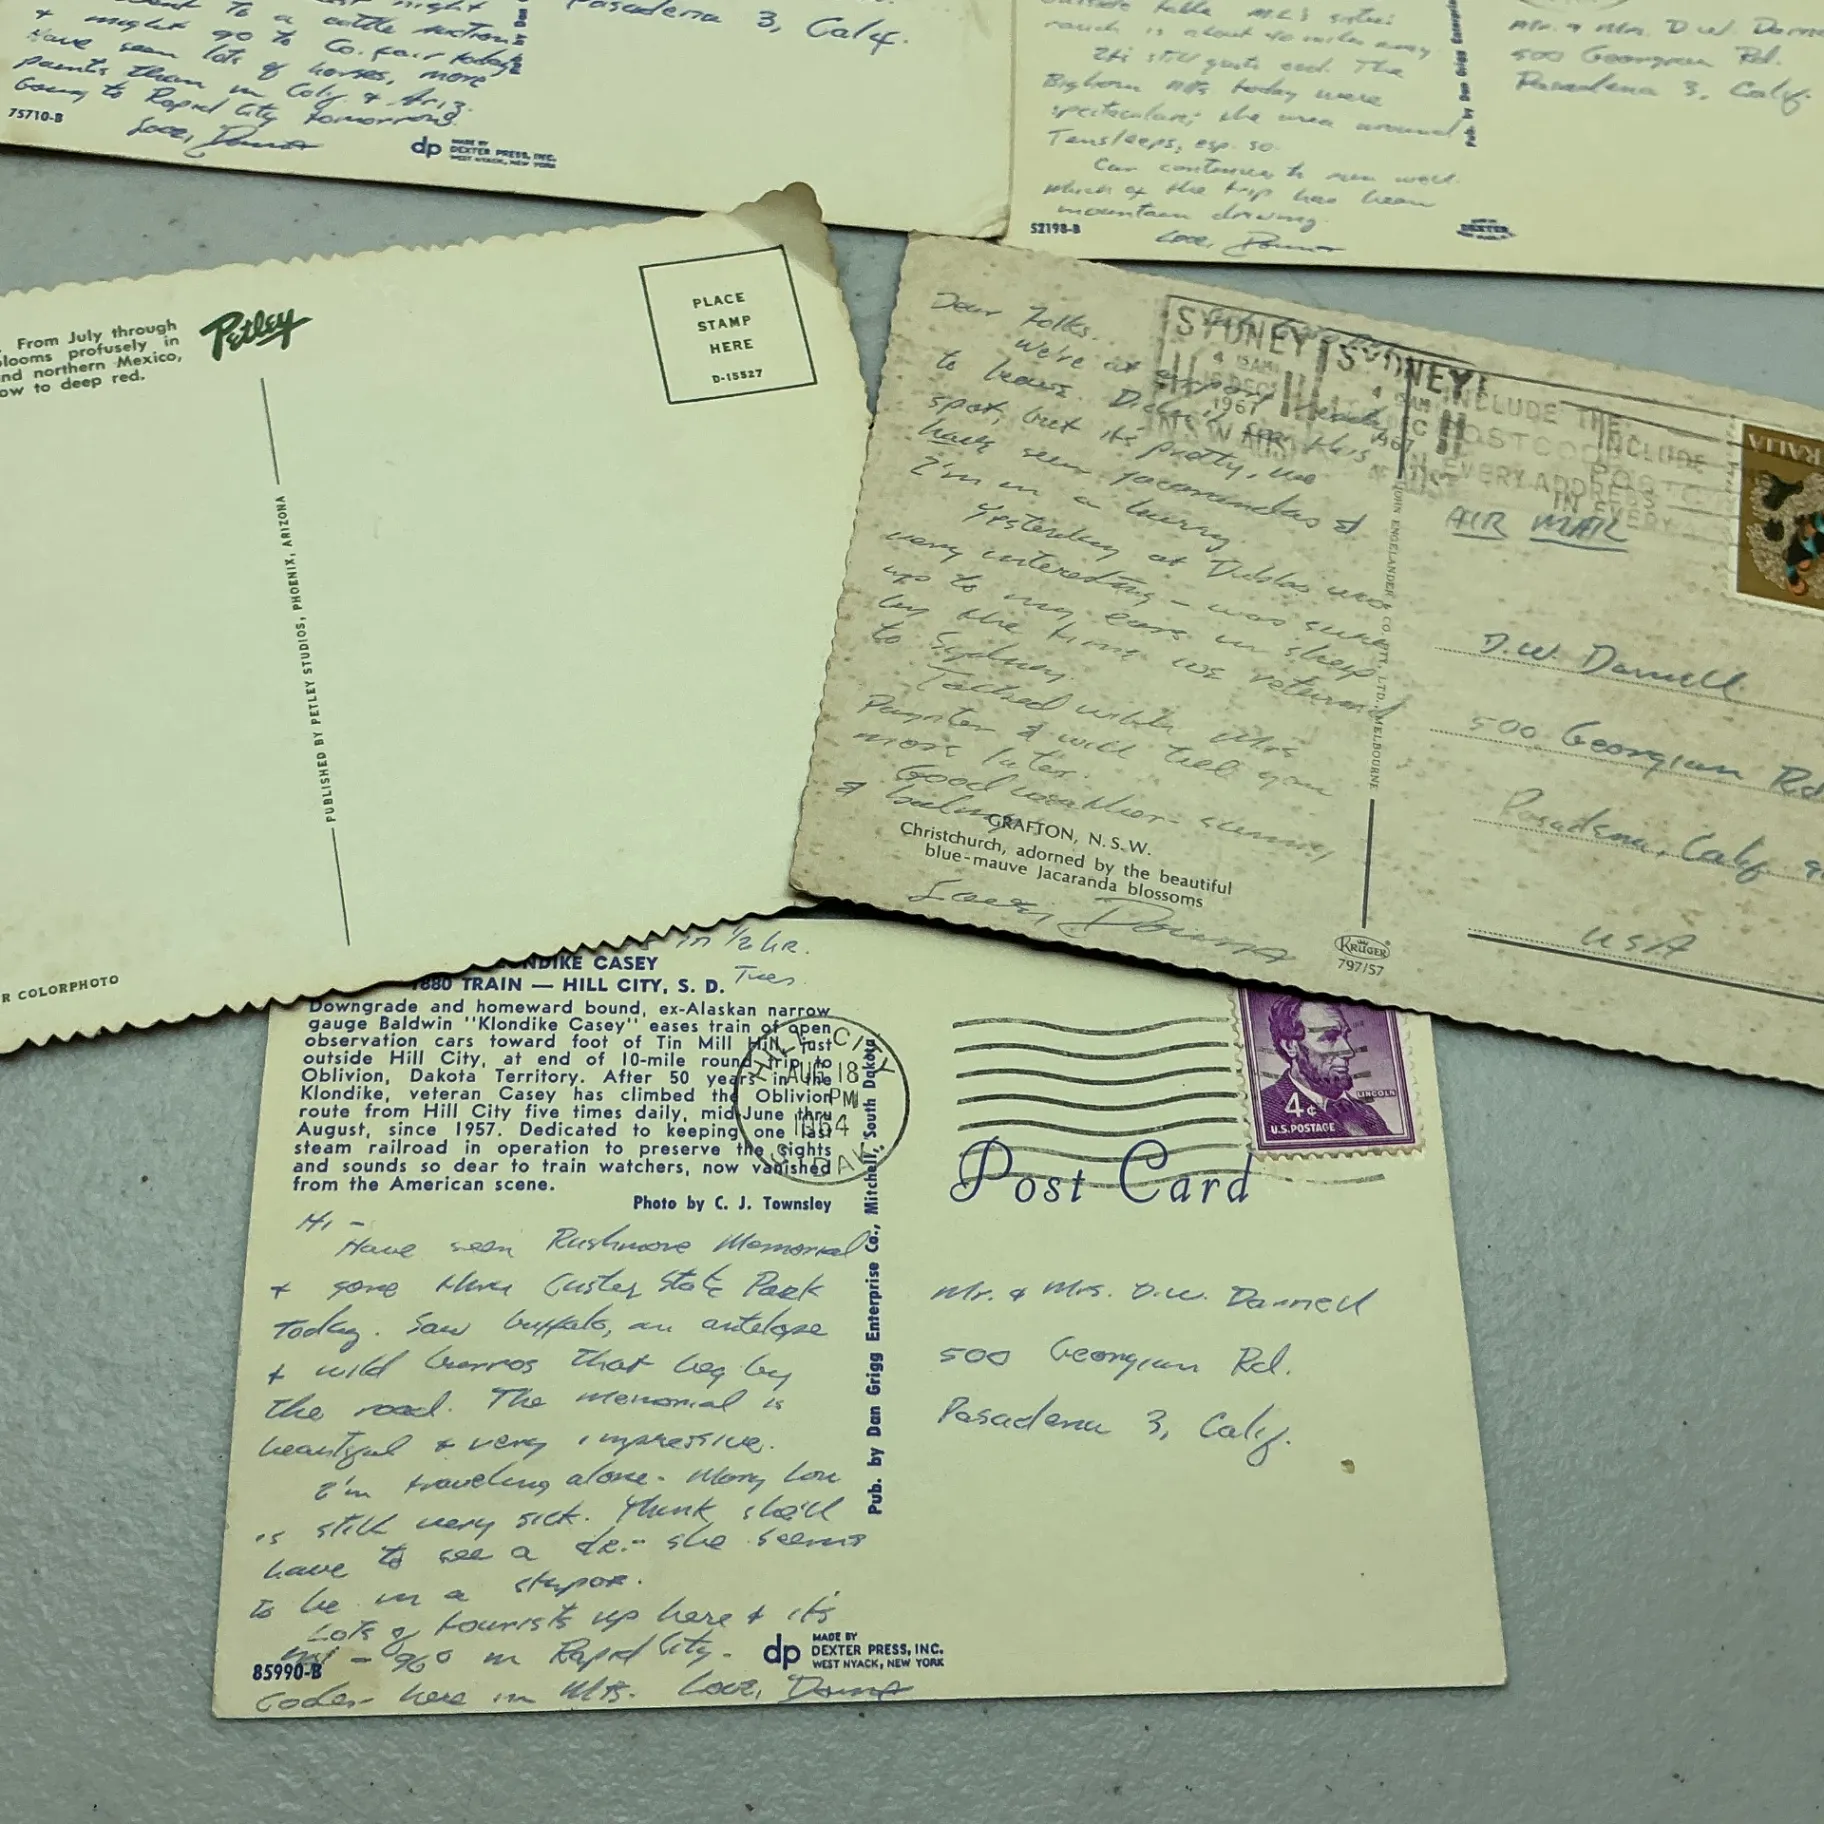 to a cattle auction
& might go to Co. fair today.
Have seen lots of horses, more
paints than in Calif & Ariz.
Going to Rapid City tomorrow.
Love, Donna
75710-B
dp MADE BY
DEXTER PRESS, INC.
WEST NYACK, NEW YORK
Pasadena 3, Calif.
ranch is about 40 miles away
It's still quite cool. The
Bighorn Mts today were
spectacular; the area around
Tensleep, esp. so.
Car continues to run well.
Much of the trip has been
mountain driving.
Love, Donna
52198-B
DEXTER
Pub. by Dan Grigg Enterprise
Mr. & Mrs. D.W. Darne
500 Georgian Rd.
Pasadena 3, Calif.
From July through
looms profusely in
nd northern Mexico,
ow to deep red.
Petley
PLACE
STAMP
HERE
D-15527
PUBLISHED BY PETLEY STUDIOS, PHOENIX, ARIZONA
R COLORPHOTO
Dear Folks.
We're at airport ready
to leave. Didn't see this
spot, but it's pretty, we
have seen jacarandas &
I'm in a hurry.
Yesterday at Dubbo was
very interesting - was sunk
up to my ears in sheep
by the time we returned
to Sydney.
Talked with Mrs
Paynter & will tell you
more later.
Good weather - sunny
&
GRAFTON, N.S.W.
Christchurch, adorned by the beautiful
blue-mauve Jacaranda blossoms
Donna
SYDNEY SYDNEY
4 15AM
DEC
1967
N.S.W. AUST
INCLUDE THE
POSTCODE
EVERY ADDRESS
INCLUDE
IN EVERY
JOHN ENGELANDER & CO. PTY. LTD. MELBOURNE
KRUGER
797/57
RALIA
AIR MAIL
D.W. Darnell
500 Georgian Rd
Pasadena, Calif 9
USA
in 1/2 hr.
Tues
NDIKE CASEY
1880 TRAIN — HILL CITY, S. D.
Downgrade and homeward bound, ex-Alaskan narrow
gauge Baldwin "Klondike Casey" eases train of open
observation cars toward foot of Tin Mill Hill, just
outside Hill City, at end of 10-mile round trip to
Oblivion, Dakota Territory. After 50 years in the
Klondike, veteran Casey has climbed the Oblivion
route from Hill City five times daily, mid-June thru
August, since 1957. Dedicated to keeping one last
steam railroad in operation to preserve the sights
and sounds so dear to train watchers, now vanished
from the American scene.
Photo by C. J. Townsley
HILL CITY
AUG 18
PM
1964
S. DAK.
4¢
LINCOLN
U.S. POSTAGE
Post Card
Hi -
Have seen Rushmore Memorial
& gone thru Custer State Park
today. Saw buffalo, an antelope
& wild burros that beg by
the road. The memorial is
beautiful & very impressive.
I'm traveling alone - Mary Lou
is still very sick. Think she'll
have to see a dr. - she seems
to be in a stupor.
Lots of tourists up here & it's
hot - 96° in Rapid City -
85990-B
Cooler here in Mts. Love, Donna
Pub. by Dan Grigg Enterprise Co., Mitchell, South Dakota
dp MADE BY
DEXTER PRESS, INC.
WEST NYACK, NEW YORK
Mr. & Mrs. D.W. Darnell
500 Georgian Rd.
Pasadena 3, Calif.